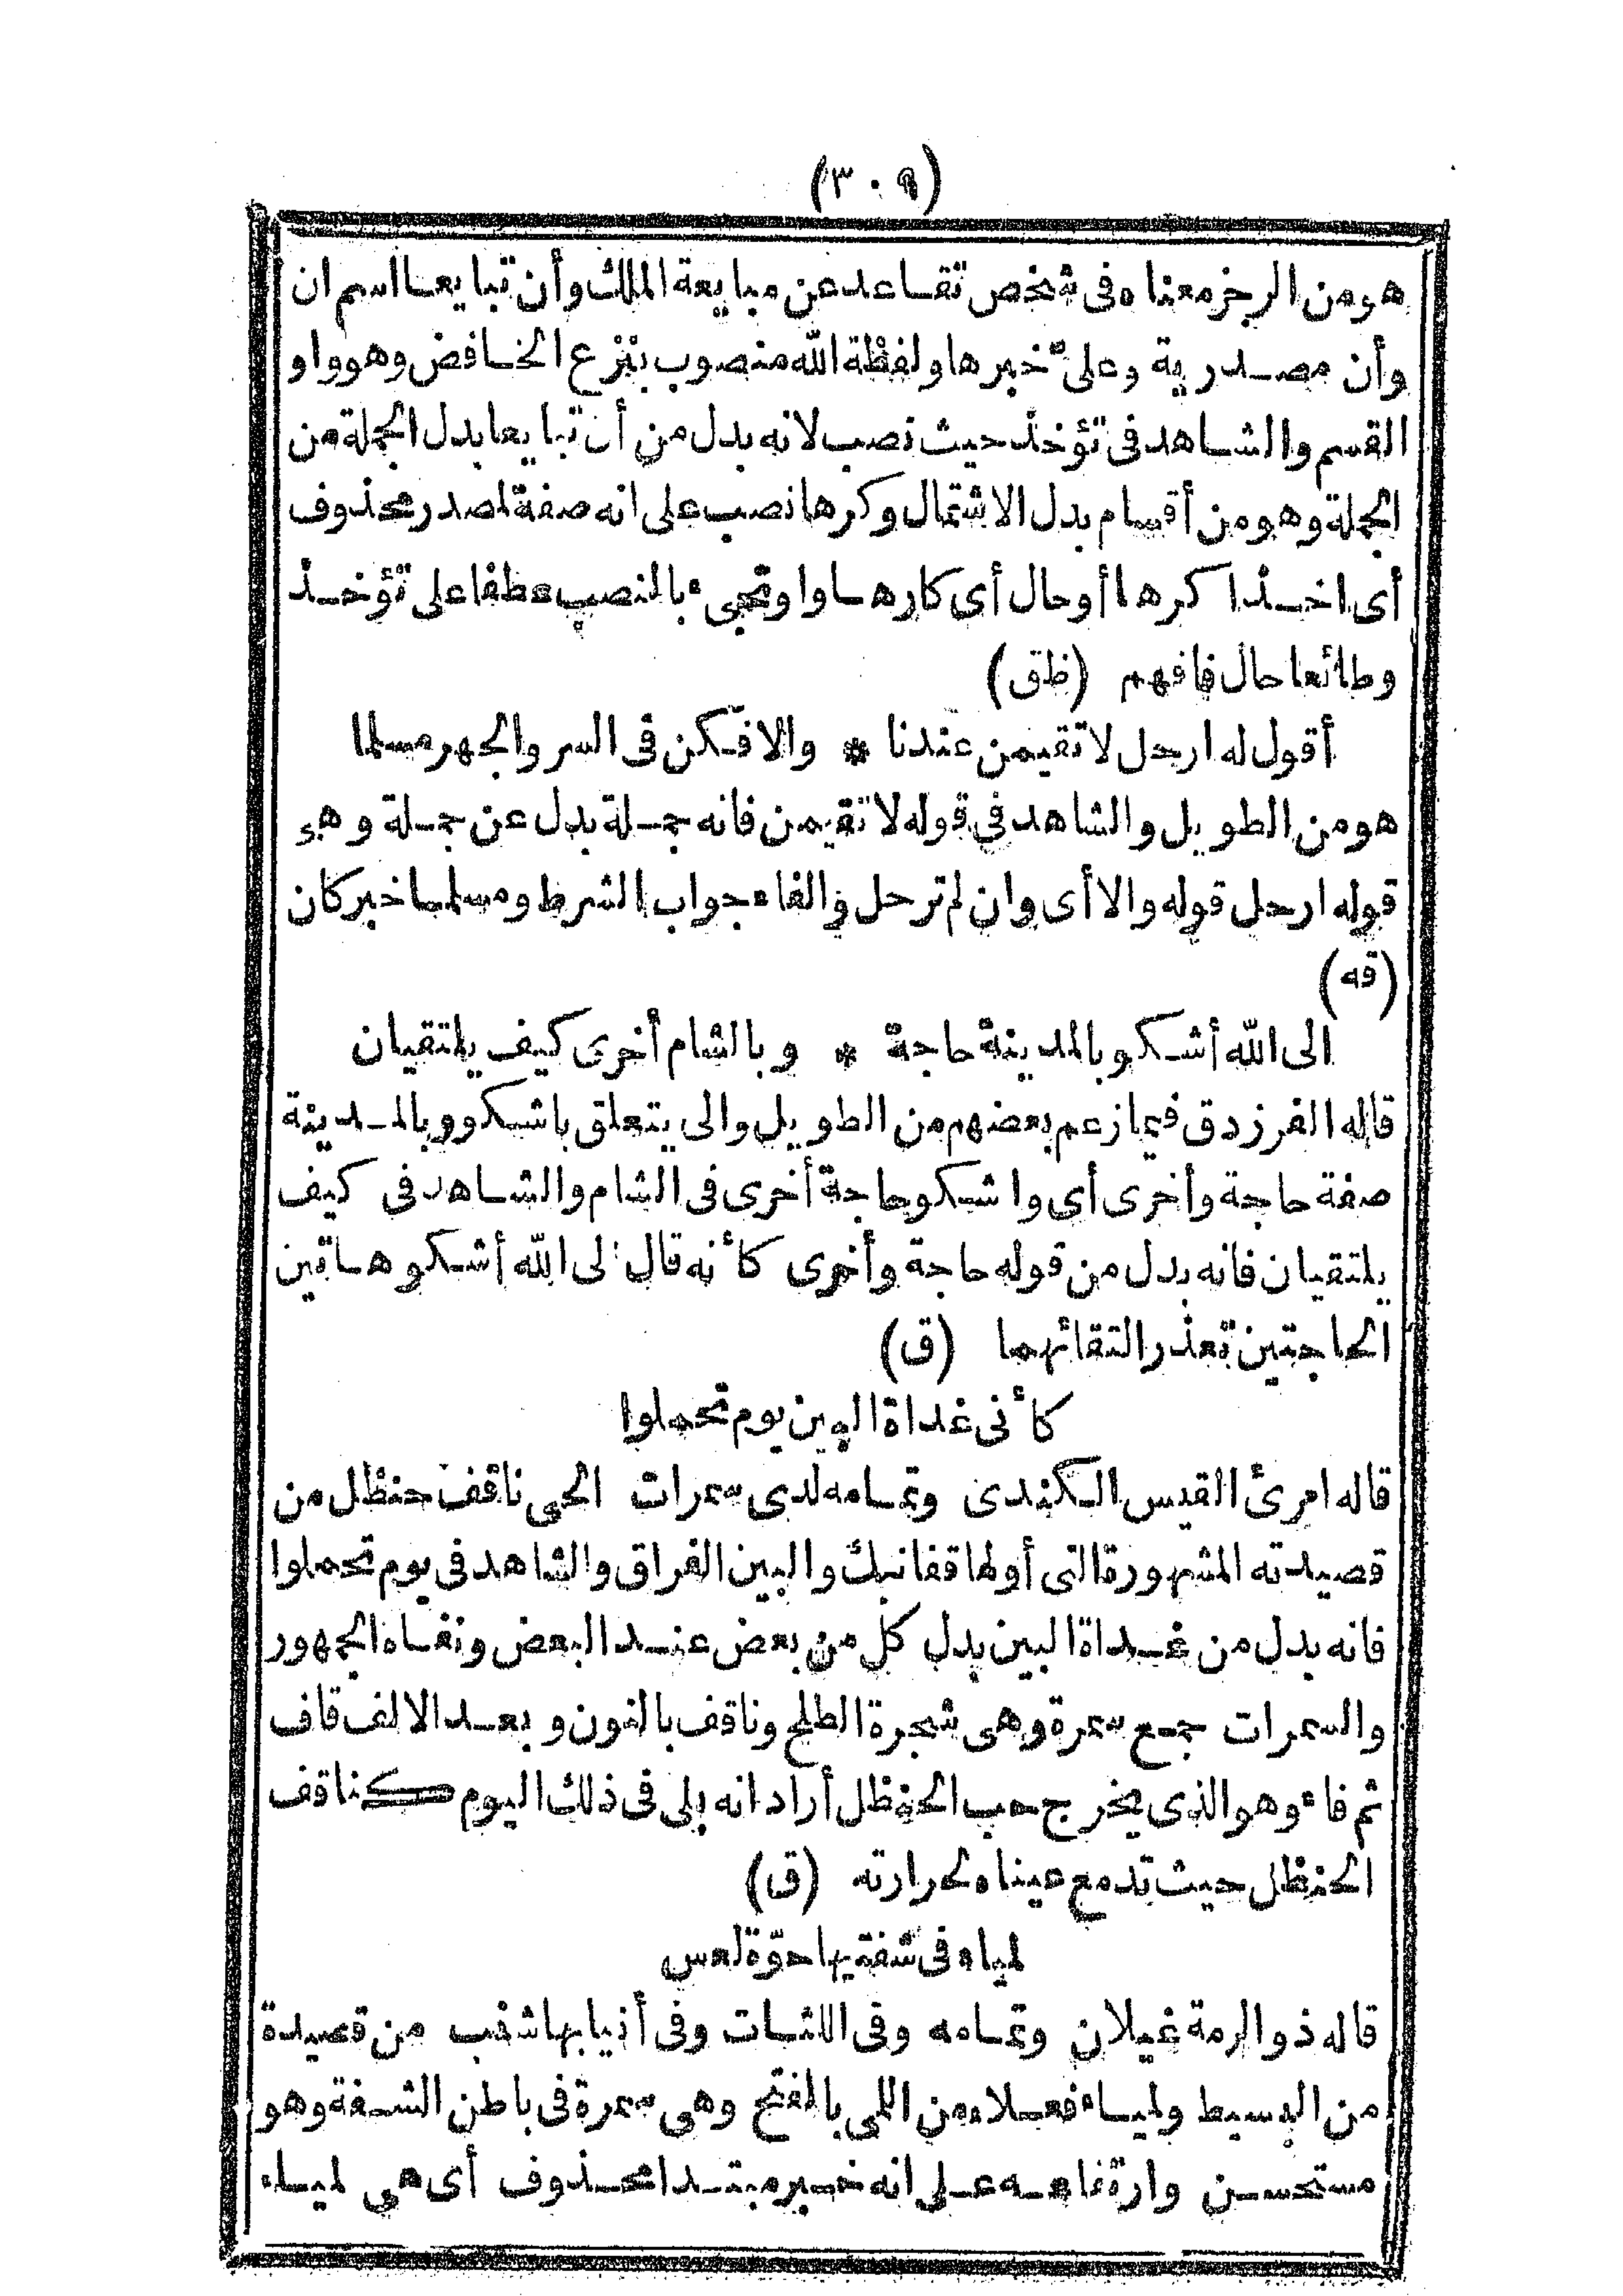 (٣٠٩)
هو من الرجز معناه فى شخص تقاعد عن مبايعة الملك وأن تبايعا اسم ان
وأن مصدرية وعلىّ خبرها ولفظة الله منصوب بنزع الخافض وهو واو
القسم والشاهد فى تؤخذ حيث نصب لانه بدل من أن تبايعا بدل الجملة من
الجملة وهو من أقسام بدل الاشتمال وكرها نصب على انه صفة لمصدر محذوف
أى اخذا كرها أو حال أى كارها وا وتجىء بالنصب عطفا على تؤخذ
وطائعا حال فافهم (ظق)
أقول له ارحل لا تقيمن عندنا * والا فكن فى السر والجهر مسلما
هو من الطويل والشاهد فى قوله لا تقيمن فانه جملة بدل عن جملة وهى
قوله ارحل قوله والا أى وان لم ترحل والفاء جواب الشرط ومسلما خبر كان
(قه)
الى الله أشكو بالمدينة حاجة * وبالشام أخرى كيف يلتقيان
قاله الفرزدق فيما زعم بعضهم من الطويل والى يتعلق باشكو وبالمدينة
صفة حاجة وأخرى أى واشكو حاجة أخرى فى الشام والشاهد فى كيف
يلتقيان فانه بدل من قوله حاجة وأخرى كأنه قال الى الله أشكو هاتين
الحاجتين تعذر التقائهما (ق)
كأنى غداة البين يوم تحملوا
قاله امرئ القيس الكندى وتمامه لدى سمرات الحى ناقف حنظل من
قصيدته المشهورة التى أولها قفا نبك والبين الفراق والشاهد فى يوم تحملوا
فانه بدل من غداة البين بدل كل من بعض عند البعض ونفاه الجمهور
والسمرات جمع سمرة وهى شجرة الطلح وناقف بالنون وبعد الالف قاف
ثم فاء وهو الذى يخرج حب الحنظل أراد انه بلى فى ذلك اليوم كناقف
الحنظل حيث تدمع عيناه لحرارته (ق)
لمياء فى شفتيها حوّة لعس
قاله ذو الرمة غيلان وتمامه وفى اللثات وفى أنيابها شنب من قصيدة
من البسيط ولمياء فعلاء من اللمى بالفتح وهى سمرة فى باطن الشفة وهو
مستحسن وارتفاعه على انه خبر مبتدا محذوف أى هى لمياء